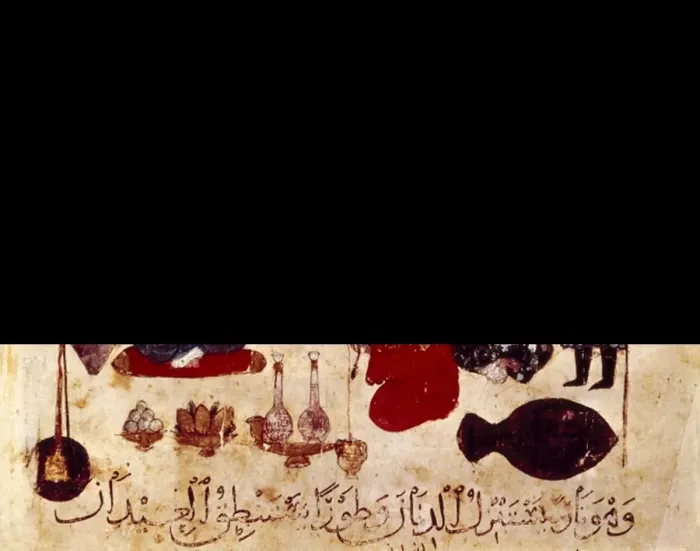 وَهْوَ تَارَةً يَسْتَبْزِلُ الدِّنَانَ وَطَوْرًا يَسْتَنْطِقُ الْعِيْدَانَ